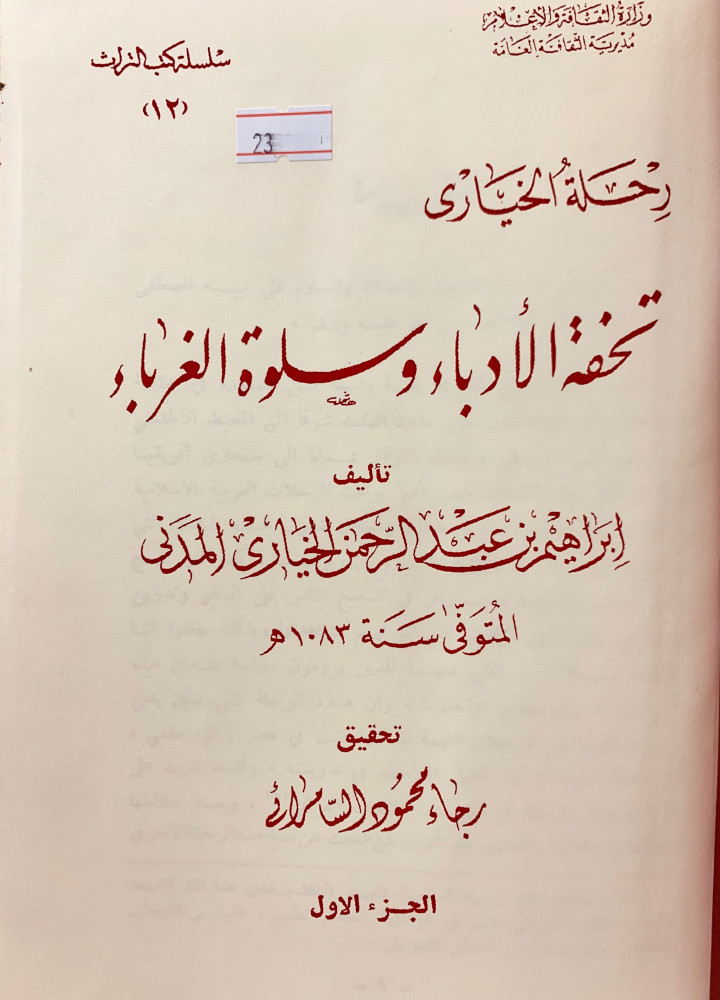 وزارة الثقافة والإعلام
مديرية الثقافة العامة
سلسلة كتب التراث
(١٢)
23
رحلة الخياري
تحفة الأدباء وسلوة الغرباء
تأليف
إبراهيم بن عبد الرحمن الخياري المدني
المتوفى سنة ١٠٨٣ هـ
تحقيق
رجاء محمود السامرائي
الجزء الاول